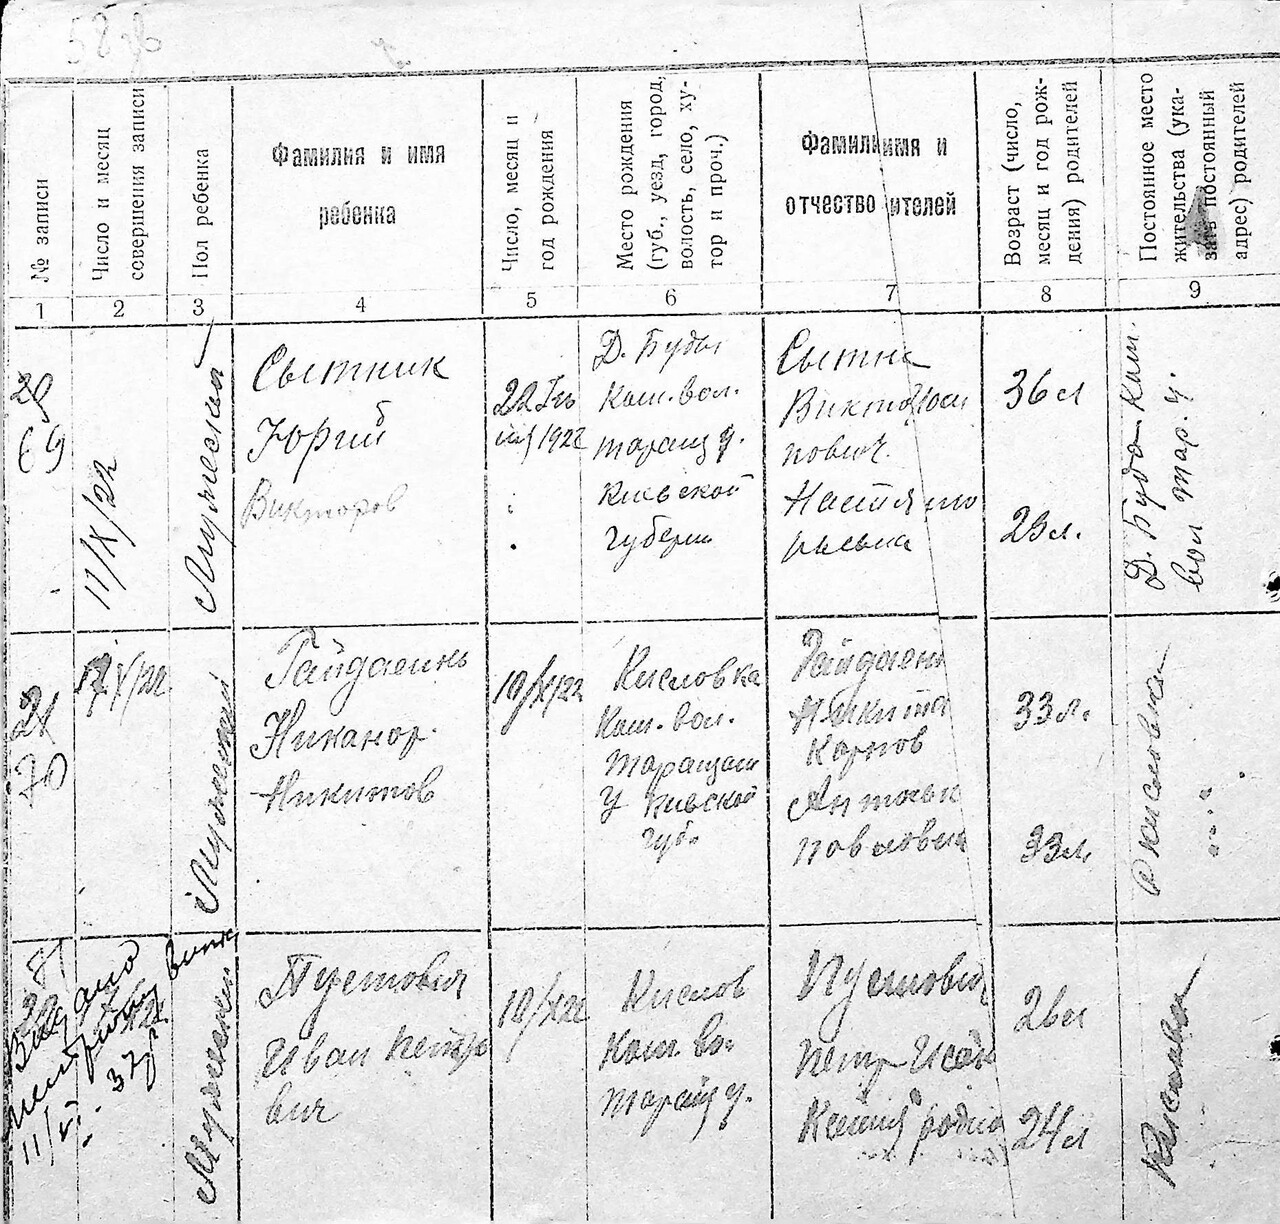 58 зв
№ записи
Число и месяц
совершения записи
Пол ребенка
Фамилия и имя
ребенка
Число, месяц и
год рождения
Место рождения
(губ., уезд, город,
волость, село, ху-
тор и проч.)
Фамил имя и
отчество ителей
Возраст (число,
месяц и год рож-
дения) родителей
Постоянное место
жительства (ука-
зать постоянный
адрес) родителей
1 2 3 4 5 6 7 8 9
20
69
11/X/22
Мужеский
Сытник
Юрий
Викторов
22
1922
Д. Буды
Каш. вол.
таращ у.
Киевской
губерни
Сытни
Викто
пович
Настя
36 л
29 л.
Д. Буда Каш.
вол тар. у.
21
70
17/X/22
Мужеский
Гайдаенко
Никанор
Никитов
10/X/22
Кисловка
Каш. вол.
Таращан
У Киевской
губ.
Гайдаен
Никита
Карпов
Павлови
33 л.
33 л.
Кисловка
22
71
Видано
Мужеский
Пустовит
Иван Петро
вич
10/X22
Кислов
Каш. во.
таращ у.
Пустови
Петр Исак
26 л
24 л
Кисловка